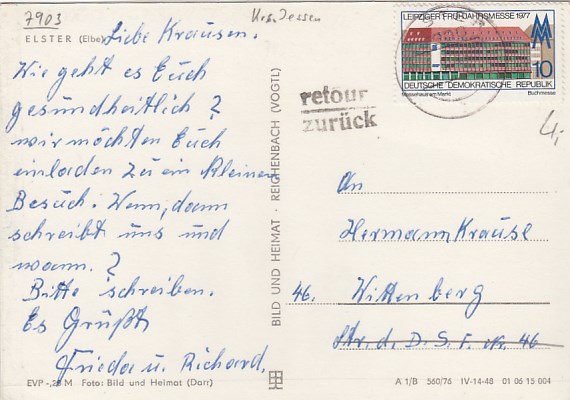 7903
Krs. Jessen
ELSTER (Elbe)
Liebe Krausen.
Wie geht es Euch
gesundheitlich?
wir möchten Euch
einladen zu ein kleinen
Besuch. Wenn, dann
schreibt uns und
wann.?
Bitte schreiben.
Es Grüßt
Frieda u. Richard.
EVP -,20 M Foto: Bild und Heimat (Darr)
BILD UND HEIMAT · REICHENBACH (VOGTL)
LEIPZIGER FRÜHJAHRSMESSE 1977
10
DEUTSCHE DEMOKRATISCHE REPUBLIK
Messehaus am Markt Buchmesse
retour
zurück
4,-
An
Hermann Krause
46. Wittenberg
Str. d. D. S. F. Nr. 46
A 1/B 560/76 IV-14-48 01 06 15 004